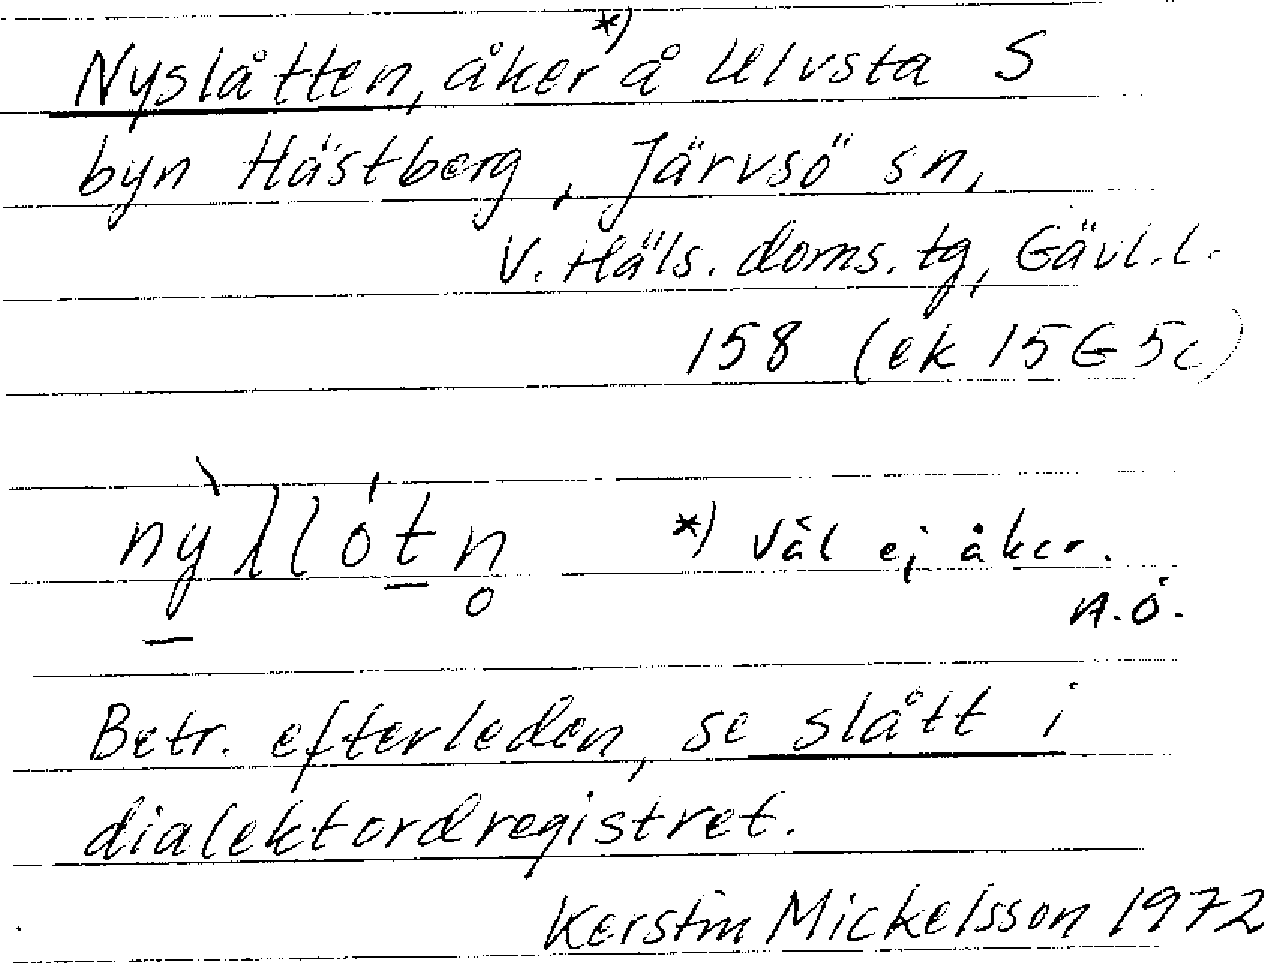 Nyslåtten, åker *) å Ulvsta S
byn Hästberg, Järvsö sn,
V. Häls. doms. tg, Gävl.l.
158 (ek 15G 5c)
*) Väl ej åker.
N.Ö.
Betr. efterleden, se slått i
dialektordregistret.
Kerstin Mickelsson 1972